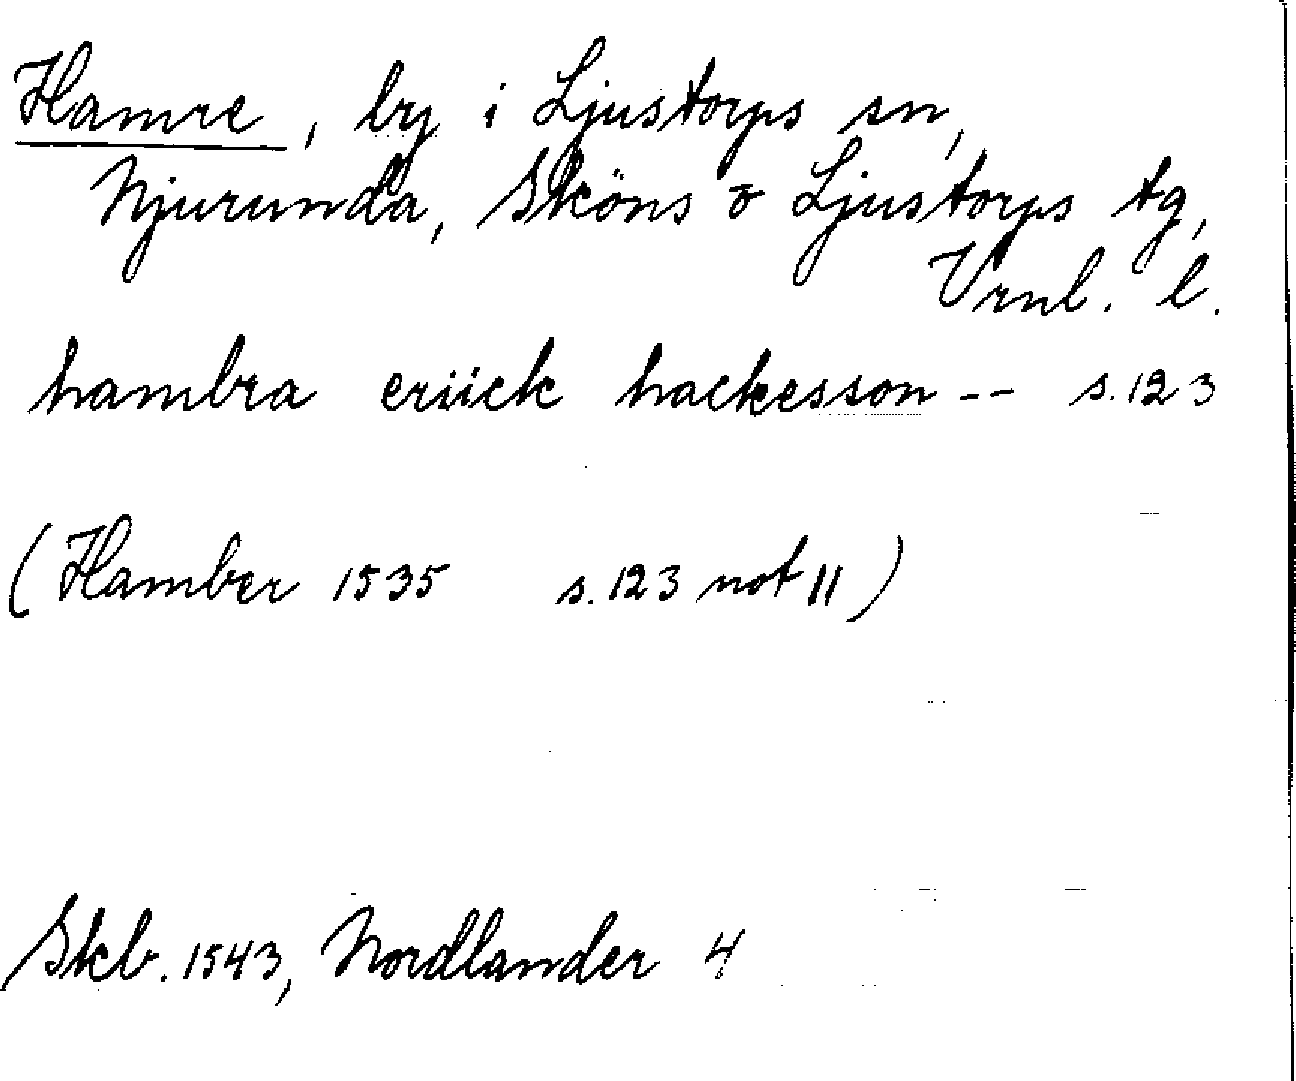 Hamre, by i Ljustorps sn,
Njurunda, Sköns o Ljustorps tg,
Vrnl. l.
hambra eriick hackesson -- s. 123
(Hamber 1535 s. 123 not 11)
Skb. 1543, Nordlander 4